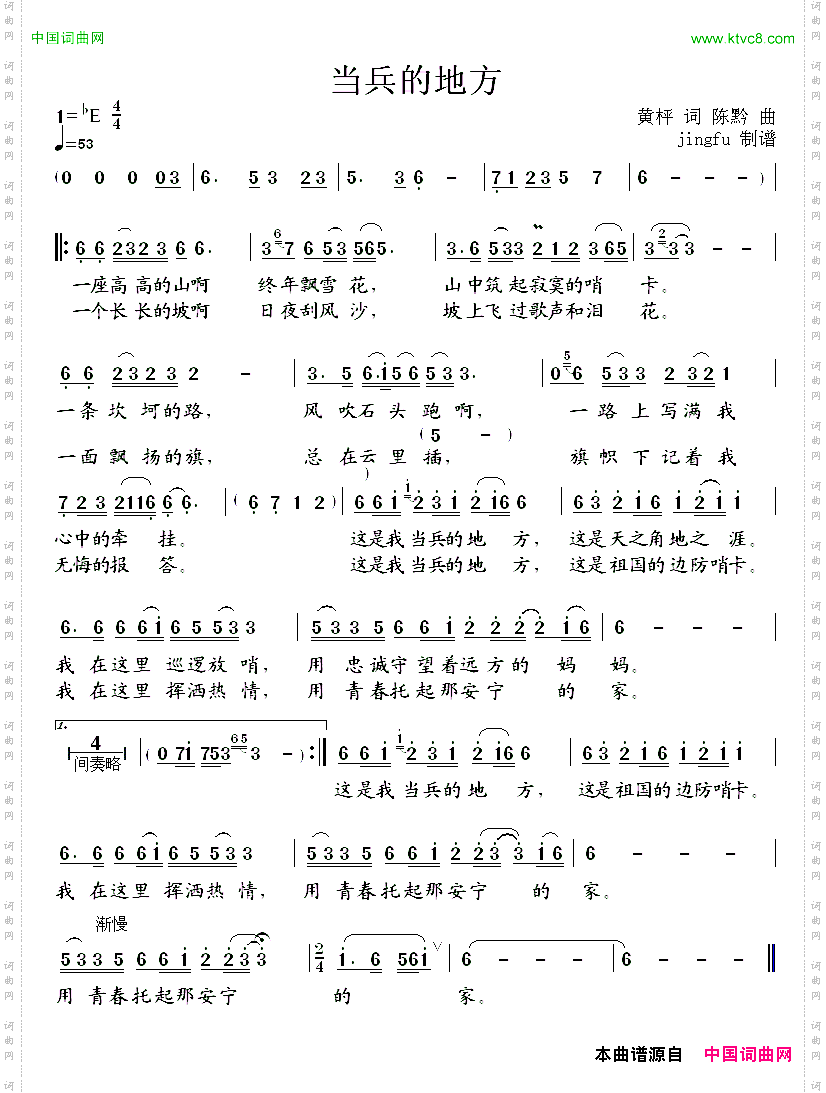 中国词曲网 www.ktvc8.com
当兵的地方
1=♭E 4/4
♩=53
黄枰 词 陈黔 曲
jingfu 制谱
(0 0 0 03 | 6. 53 23 | 5. 36 - | 71 235 7 | 6 - - - )
66 2323 66. | 3 6 7 6 53 565. | 3.6 533 212 365 | 3 2 3 3 - - |
一座高 高的山啊 终年飘雪 花， 山中筑 起寂寞的哨 卡。
一个长 长的坡啊 日夜刮风 沙， 坡上飞 过歌声和泪 花。
66 23 23 2 - | 3. 5 6.i56 533. | 06 5 533 2321 |
一条坎 坷的路， 风 吹石 头 跑 啊， 一 路 上 写满 我
(5 - )
一面飘 扬的旗， 总 在云 里 插， 旗 帜 下 记着 我
723 2116 66. | (6 7 1 2) | 66i i 2 3 i 2 i6 6 | 63 2 i6 i 2 i i |
心中的牵 挂。 这是我 当兵的地 方， 这是天之角地之 涯。
无悔的报 答。 这是我 当兵的地 方， 这是祖国的边防哨卡。
6. 6 66i 65 533 | 5335 66i 2 2 2 2 i6 | 6 - - - |
我 在这里 巡逻放 哨， 用 忠诚守 望着远方的 妈 妈。
我 在这里 挥洒热 情， 用 青春托 起那安宁 的 家。
1.
4 (0 7i 753 65 3 - ) :| 66i i 2 3 i 2 i6 6 | 63 2 i6 i 2 i i |
间奏略
这是我 当兵的地 方， 这是祖国的边防哨卡。
6. 6 66i 65 533 | 5335 66i 2 23 3 i6 | 6 - - - |
我 在这里 挥洒热 情， 用 青春托起那安宁 的 家。
渐慢
5335 66i 2 23 3 | 2/4 i. 6 56i ∨ | 6 - - - 6 - - - ‖
用 青春托起那安宁 的 家。
本曲谱源自 中国词曲网